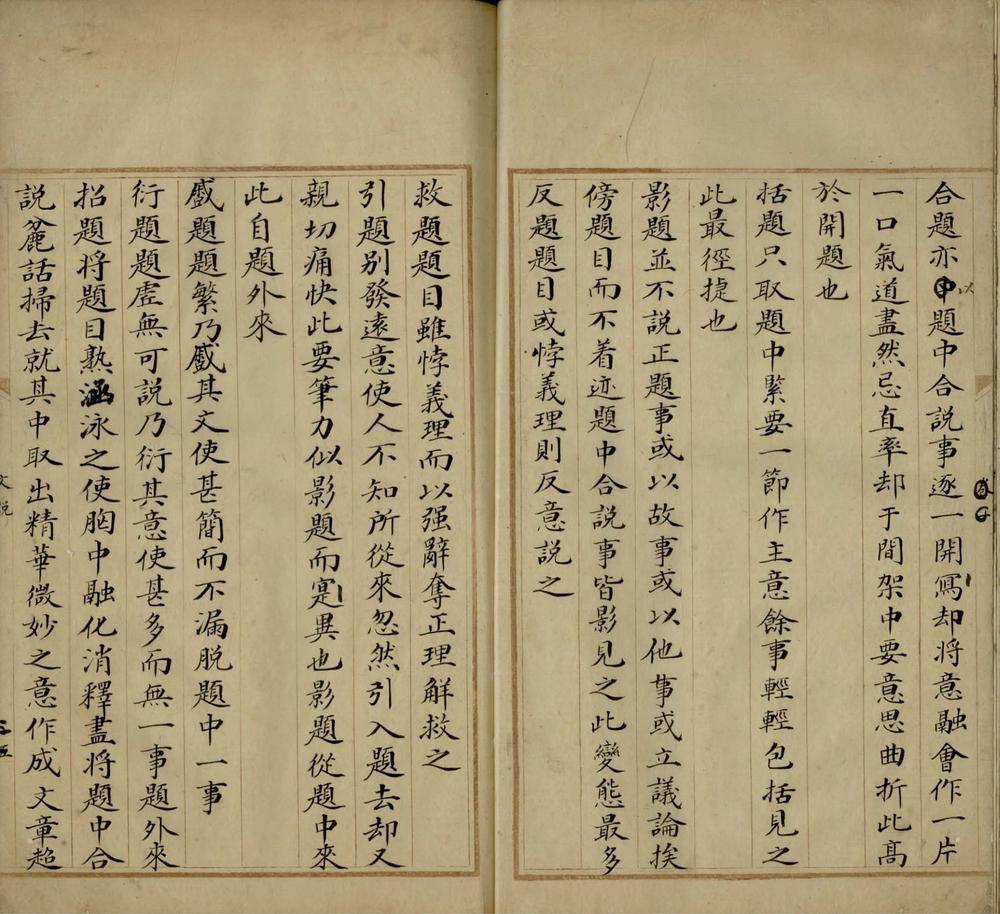 合題亦中題中合説事逐一開寫却將意融會作一片
以
一口氣道盡然忌直率却于間架中要意思曲折此髙
於開題也
括題只取題中緊要一節作主意餘事輕輕包括見之
此最徑捷也
影題並不説正題事或以故事或以他事或立議論挨
傍題目而不着迹題中合説事皆影見之此變態最多
反題題目或悖義理則反意説之
救題題目雖悖義理而以强辭奪正理解救之
引題别發遠意使人不知所從來忽然引入題去却又
親切痛快此要筆力似影題而寔異也影題從題中來
此自題外來
蹙題題繁乃蹙其文使甚簡而不漏脱題中一事
衍題題虚無可説乃衍其意使甚多而無一事題外來
招題將題目熟涵泳之使胸中融化消釋盡將題中合
説麄話掃去就其中取出精華微妙之意作成文章超
文説